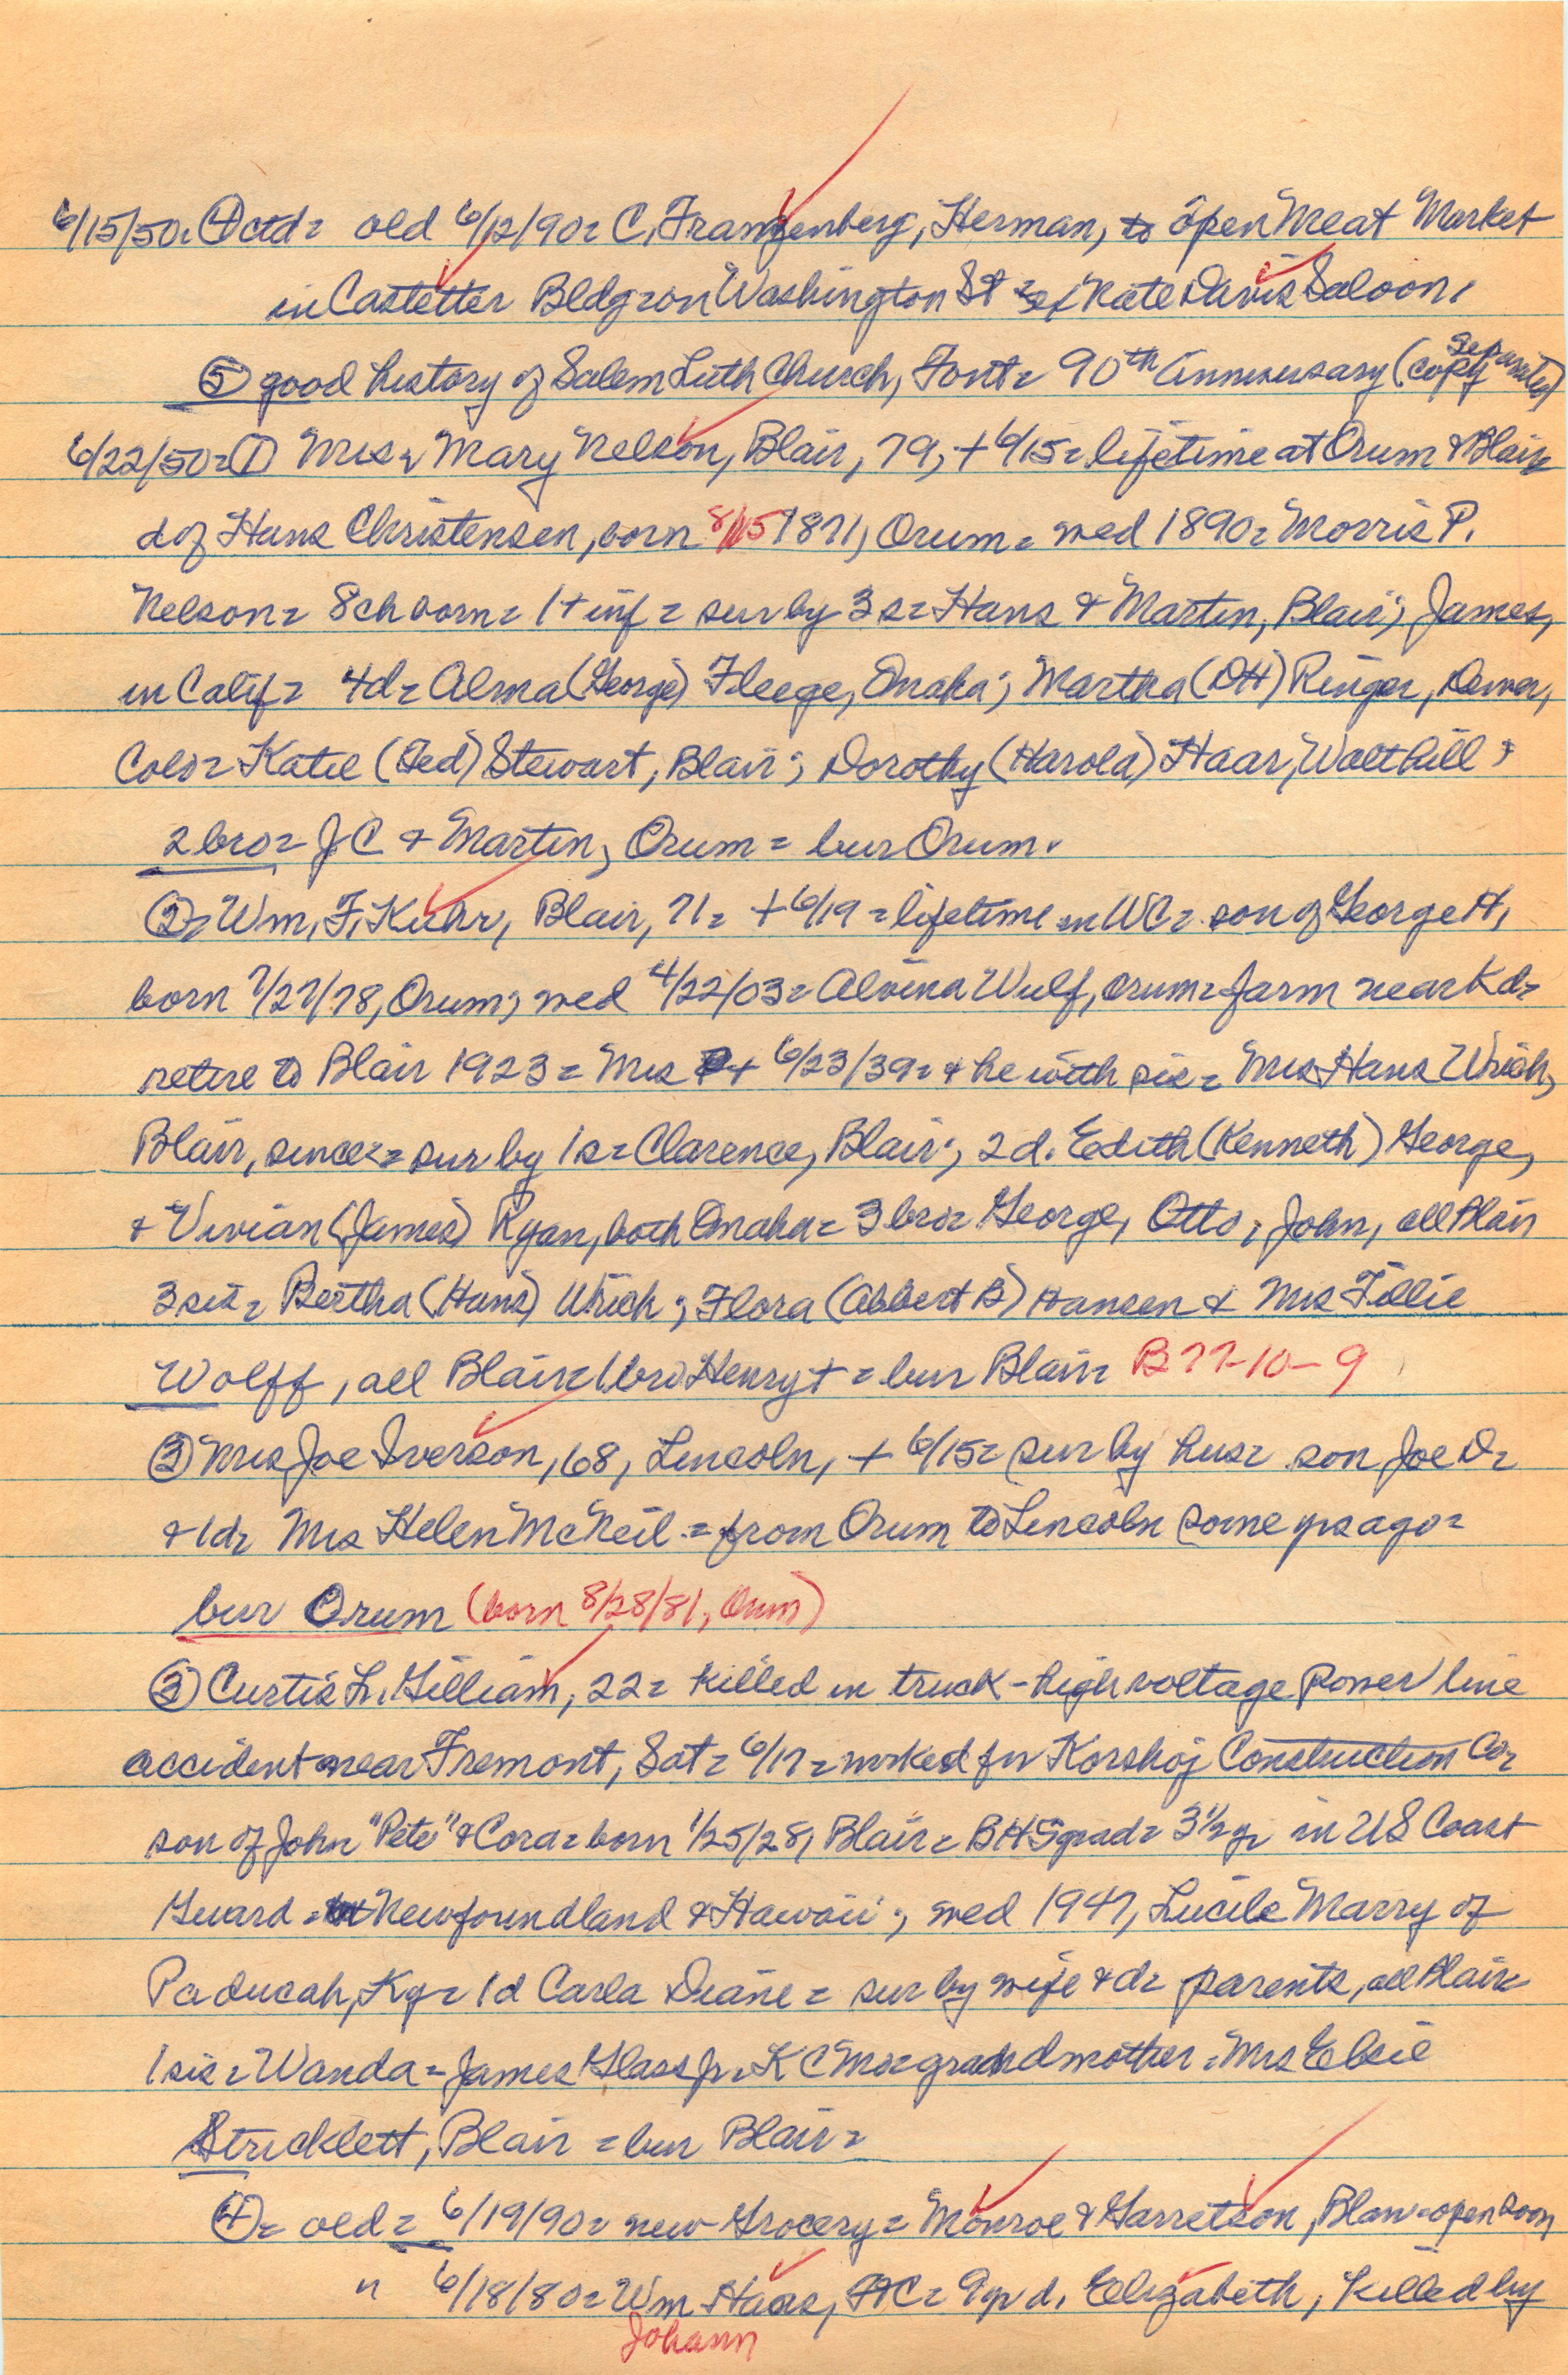 6/15/50= ④ ctd= old 6/12/90= C. Franzenberg, Herman, to open Meat Market
in Castetter Bldg on Washington St = ex Kate Davis Saloon,
⑤ good history of Salem Luth Church, Font= 90th Anniversary (copy separated)
6/22/50= ① Mrs. Mary Nelson, Blair, 79, + 6/15= lifetime at Orum & Blair
d of Hans Christensen, born 8/15 1871, Orum = wed 1890= Morris P.
Nelson= 8 ch born= 1 + inf = sur by 3 s= Hans & Martin, Blair; James,
in Calif= 4d= Alma (George) Fleege, Omaha; Martha (DH) Ringer, Denver,
Colo= Katie (Ted) Stewart, Blair; Dorothy (Harold) Haar, Walthill &
2 bro= J C & Martin, Orum = bur Orum.
②= Wm. F. Kuhr, Blair, 71= + 6/19 = lifetime in WC= son of George H,
born 7/27/78, Orum; wed 4/22/03= Alvina Wulf, Orum= farm near Kd=
retire to Blair 1923 = Mrs + 6/23/39= & he with sis= Mrs Hans Wrich,
Blair, since = sur by 1 s= Clarence, Blair; 2 d. Edith (Kenneth) George,
& Vivian (James) Ryan, both Omaha= 3 bro= George, Otto, John, all Blair
3 sis= Bertha (Hans) Wrich; Flora (Albert B) Hansen & Mrs Tillie
Wolff, all Blair= 1 bro Henry + = bur Blair= B77-10-9
③ Mrs Joe Iverson, 68, Lincoln, + 6/15= sur by hus= son Joe D=
& 1d= Mrs Helen McNeil = from Orum to Lincoln some yrs ago=
bur Orum (born 8/28/81, Orum)
③ Curtis L. Gilliam, 22= killed in truck-high voltage power line
accident near Fremont, Sat= 6/17= worked for Korshoj Construction Co=
son of John "Pete" & Cora= born 1/25/28, Blair= BHS grad= 3 1/2 yr in US Coast
Guard = Newfoundland & Hawaii; wed 1947, Lucile Marry of
Paducah, Ky= 1d Carla Diane = sur by wife & d= parents, all Blair
1 sis= Wanda= James Glass Jr= K C Mo= grandmother= Mrs Elsie
Stricklett, Blair = bur Blair=
④= old= 6/19/90= new Grocery= Monroe & Garretson, Blair= open soon
" 6/18/80= Wm Haas, FtC= 9 yr d. Elizabeth, killed by
Johann